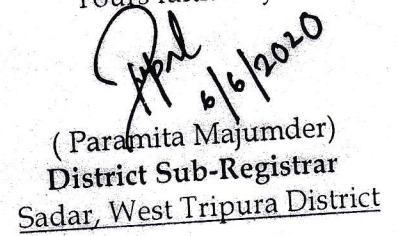 6/6/2020
( Paramita Majumder)
District Sub-Registrar
Sadar, West Tripura District